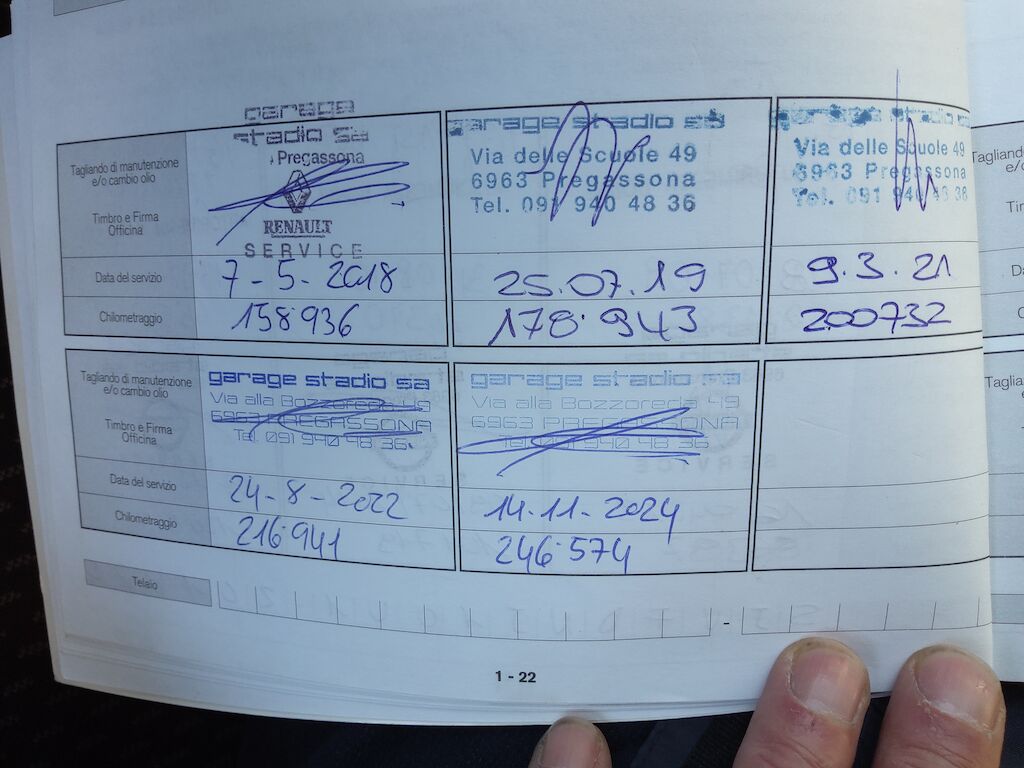 garage
stadio sa
Pregassona
RENAULT
SERVICE
garage stadio sa
Via delle Scuole 49
6963 Pregassona
Tel. 091 940 48 36
garage stadio sa
Via delle Scuole 49
6963 Pregassona
Tel. 091 940 48 36
Tagliando di manutenzione
e/o cambio olio
Timbro e Firma
Officina
Data del servizio
7-5-2018
25.07.19
9.3.21
Chilometraggio
158936
178'943
200732
Tagliando di manutenzione
e/o cambio olio
Timbro e Firma
Officina
garage stadio sa
Via alla Bozzoreda 49
6963 PREGASSONA
Tel. 091 940 48 36
garage stadio sa
Via alla Bozzoreda 49
6963 PREGASSONA
Tel. 091 940 48 36
Data del servizio
24-8-2022
14-11-2024
Chilometraggio
216'941
246'574
Telaio
-
1 - 22